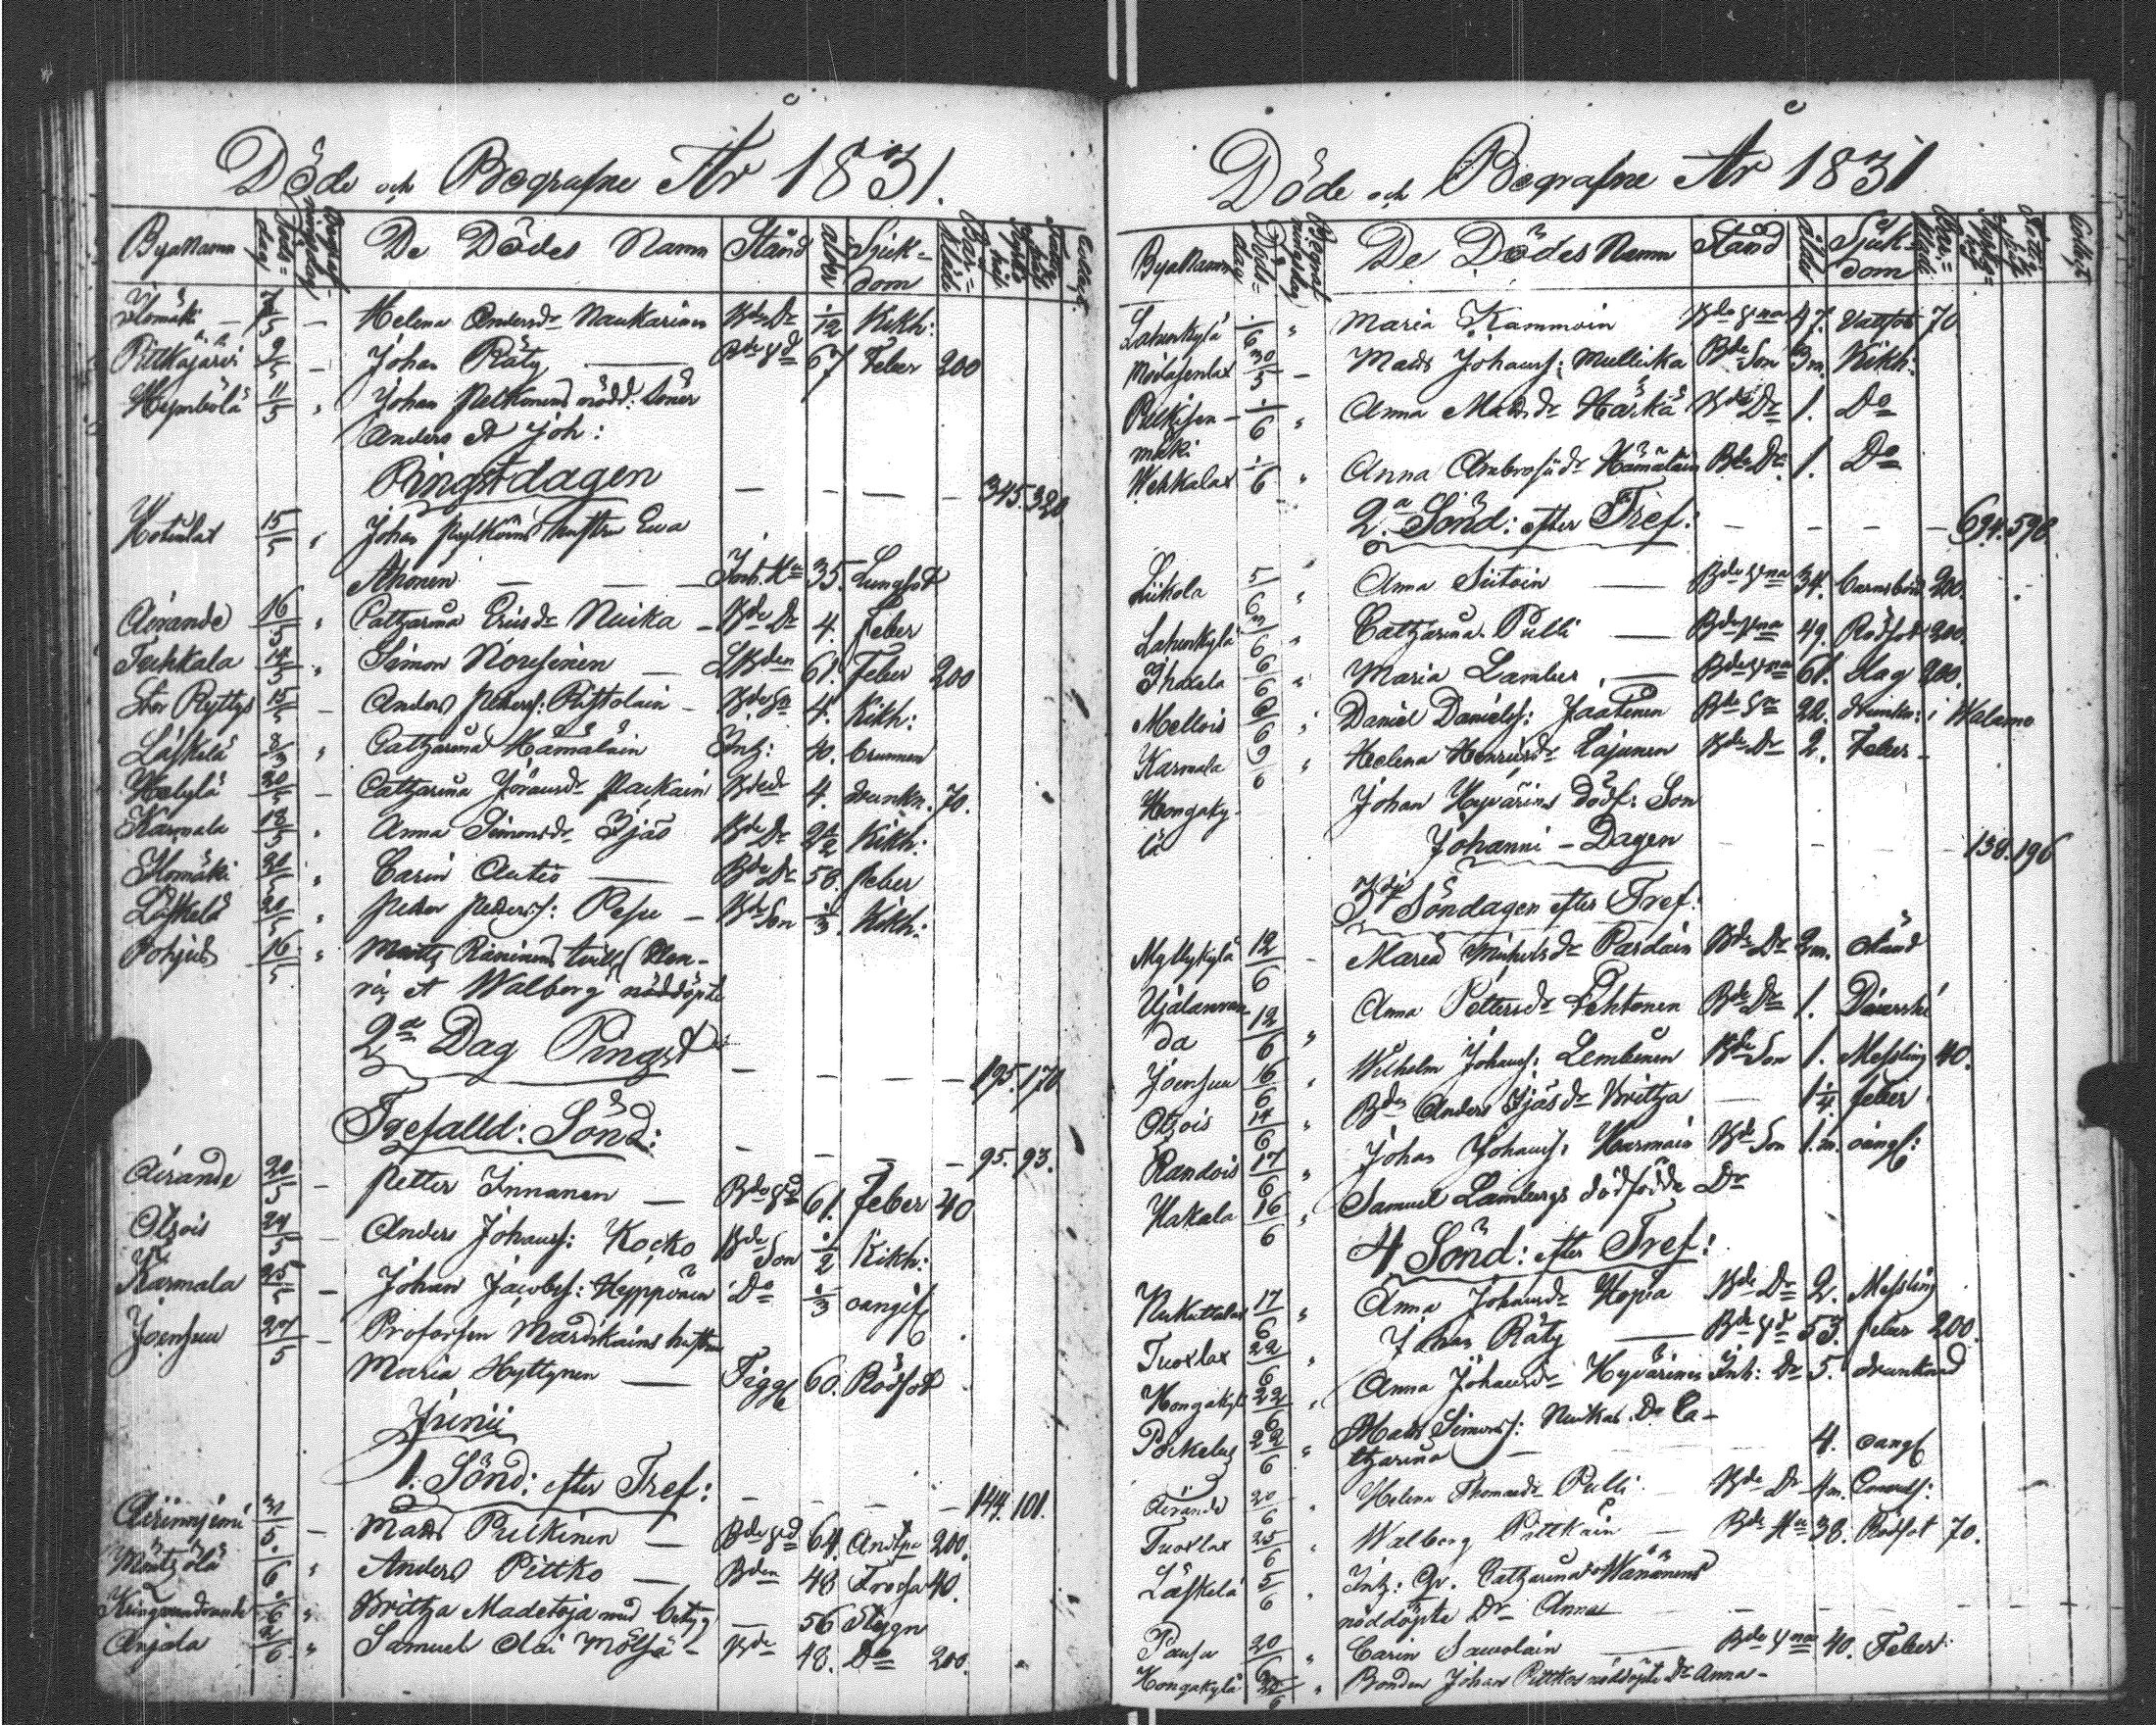 Döde och Begrafne År 1831.
ByaNamn Döds-dag Begrafningsdag De Dödes Namn Stånd Ålder Sjuk-dom
Ilomäki 7/5 — Helena Andersdr Naukarinen Bde Dr 1/12 Kikh:
Pitkäjärvi 9/5 — Johan Räty — 67 Feber 200
Hymbölä 11/5 " Johan Pelkonens nödd: Söner
Anders et Joh:
Pingstdagen — — — — 345. 320
Hotinlax 15/5 " Johan hustru Eva
Ahonen — — Inh. Hu 35. Lungsot
Airande 16/5 " Catharina Ericsdr Nuika — Bde Dr 4. Feber
Tuhkala 14/5 " Simon — 61. Feber 200
Stor Ryttys 15/5 — Anders Petterss: Ristolain — Bde Sn 4. Kikh:
Läskelä 8/3 " Catharina Hämäläin Inh: 40. brunnen
Helylä 20/5 — Catharina 4. drunkn. 70.
Karmala 18/5 " Anna Simonsdr Ijäs Bde Dr Kikh:
Ilomäki 20/5 " Carin Autio — 58. feber
Läskelä 20/5 " Peter Peterss: Pesu — Bde Son 1/3 Kikh:
Pohjus 16/5 " Matts Räninens tvill. Hen-
ric et Walborg nöddöpte
2a Dag Pingst — — — — 195. 170
Trefalld: Sönd: — — — — 95. 93.
Airande 20/5 — Petter Innanen — 61. Feber 40
Otsois 24/5 — Anders Johanss: Kocko Bde Son 1/2 Kikh:
Karmala 25/5 — Johan Jacobss: Heyppönen Do 1/3 oangif
Joensuu 27/5 — Profossen Mardikains hustru
Maria Hyttynen — Tigg 60. Rödsot
Junii
1. Sönd: efter Tref: — — — — 144. 101.
31/5 — Mats Pulkinen — 64. Andtpa 200.
Mäntzölä /6 " Anders Pittko — Bden 48 Frossa 40.
Kringvandrande /6 " Britha Madetoja med betyg — 56 Stygn
Anjala 2/6 " Samuel Mölsä — Bde 48. Do 200.
Döde och Begrafne År 1831
ByaNamn Döds-dag Begrafningsdag De Dödes Namn Stånd Ålder Sjuk-dom
Lahenkylä 1/6 " Maria Kammoin 47. Vattsot 70
30/5 — Mats Johanss: Mullikka Bde Son 3m. Kikh:
Pulkisen- 1/6 " Anna Matsdr Härkä Bde Dr 1. Do
mäki
Wehkalax 1/6 " Anna Ambrosiidr Hämäläin Bde Dr 1. Do
2a Sönd: efter Tref: — — — — 694. 598.
Liikola 5/6 " Anna Siitoin — 34. barnsbörd 200.
Lahenkylä 3/6 " Catharina Pulli — 49. Rödsot 200.
Ihaxela 6/6 " Maria Lamber — 61. slag 200.
Mellois 6/6 " Daniel Danielss: Jaatinen 22. drunkn: i Walamo
Karmala 9/6 " Helena Henricsdr Lajunen Bde Dr 2. Feber —
Hongaky- Johan Hyvärins dödf: Son
lä Johanni-Dagen — — — — 138. 196
3dje Söndagen efter Tref:
Myllykylä 12/6 — Maria Michelsdr Pardain Bde Dr 2m. okänd
Ujälanran-
da 12/6 " Anna Pettersdr Lehtonen Bde Dr 1. Diarrhé
Joensuu 16/6 " Wilhelm Johanss: Lembinen Bde Son 1. Messling 40.
Otsois 14/6 " Bdns Anders Ijäs dr Britha — 1 1/4 feber
Randois 17/6 " Johan Johanss: Harmain Bde Son 1.m. oangf:
Hakala 16/6 " Samuel Lambergs dödfödde Dr
4 Sönd: efter Tref:
Kukuttalax 17/6 " Anna Johansdr Hopia Bde Dr 2. Messling
Tuoxlax 22/6 " Johan Räty — 53. feber 200.
Hongakyl. 22/6 " Anna Johansdr Hyvärinen Inh: Dr 5. drunknad
22/6 " Mats Simonss: Nuikas Dr Ca-
tharina — 4. oangf
Airande 20/6 " Helena Thomasdr Pulli Bde Dr 4m.
Tuoxlax 25/6 " Walborg Pittkäin — Bde Hu 38. Rödsot 70.
Läskelä 5/6 " Inh: Qv. Catharina Wänänens
nöddöpte Dr Anna — — — —
20/6 " Carin Sawolain — 40. Feber
Hongakylä 30/6 " Bonden Johan Pittkos nöddöpte Dr Anna —